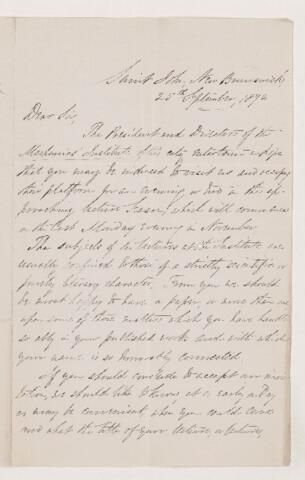 Saint John, New Brunswick
25th September, 1872
Dear Sir,
The President and Directors of the
Mechanics' Institute of this city entertain a hope
that you may be induced to visit us and occupy
their platform for an evening or two in the ap-
proaching Lecture Season, which will commence
on the last Monday evening in November
The subjects of the lectures at the Institute are
usually confined to those of a strictly scientific or
purely literary character. From you we should
be most happy to have a paper, or more than one
upon some of those matters which you have handled
so ably in your published works and with which
your name is so honorably connected.
If you should conclude to accept an invi-
tation, we should like to know, at as early a day
as may be convenient, when you could come
and what the title of your lecture or lectures,